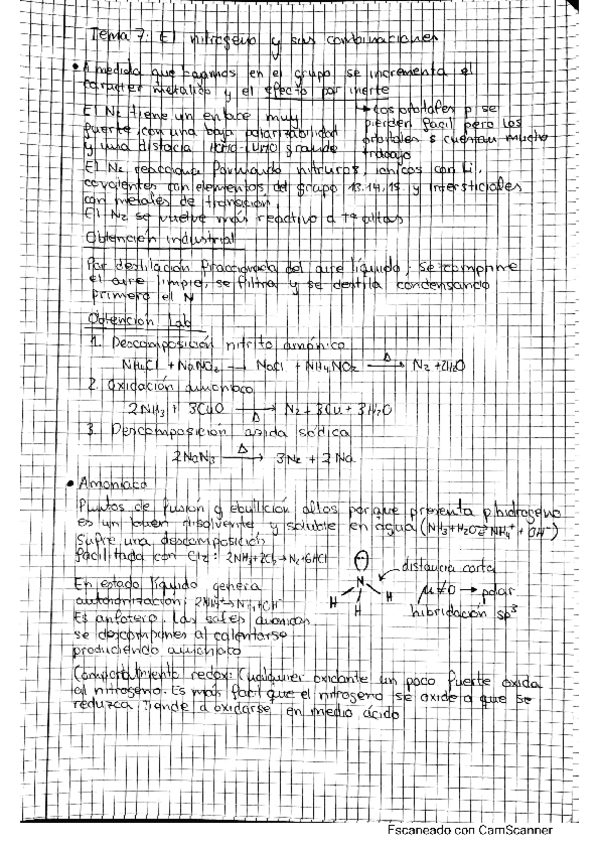 Tema 7: El nitrogeno y sus combinaciones
• A medida que bajamos en el grupo se incrementa el
caracter metalico y el efecto par inerte
El N2 tiene un enlace muy
fuerte, con una baja polarizabilidad
y una distacia HOMO-LUMO grande
→ Los orbitales p se
pierden facil pero los
orbitales s cuestan mucho
trabajo
El N2 reacciona formando nitruros, ionicos con Li,
covalentes con elementos del grupo 13, 14, 15 y intersticiales
con metales de transición.
El N2 se vuelve más reactivo a tª altas
Obtención industrial
Por destilación fraccionada del aire líquido, se comprime
el aire limpio, se filtra y se destila condensando
primero el N
Obtención Lab
1. Descomposición nitrito amónico
NH4Cl + NaNO2 → NaCl + NH4NO2 —Δ→ N2 + 2H2O
2. Oxidación amoniaco
2NH3 + 3CuO —Δ→ N2 + 3Cu + 3H2O
3. Descomposición azida sódica
2NaN3 —Δ→ 3N2 + 2Na
• Amoniaco
Puntos de fusión y ebullición altos porque presenta p.hidrogeno
es un buen disolvente y soluble en agua (NH3+H2O⇌NH4+ + OH-)
Sufre una descomposición
facilitada con Cl2: 2NH3+3Cl2→N2+6HCl
En estado líquido genera
autoionización:
Es anfotero. Las sales amonicas
se descomponen al calentarse
produciendo amoniaco
distancia corta
N
H H H
μ≠0 → polar
hibridación sp3
Comportamiento redox: Cualquier oxidante un poco fuerte oxida
al nitrogeno. Es más facil que el nitrogeno se oxide a que se
reduzca. Tiende a oxidarse en medio ácido
Escaneado con CamScanner